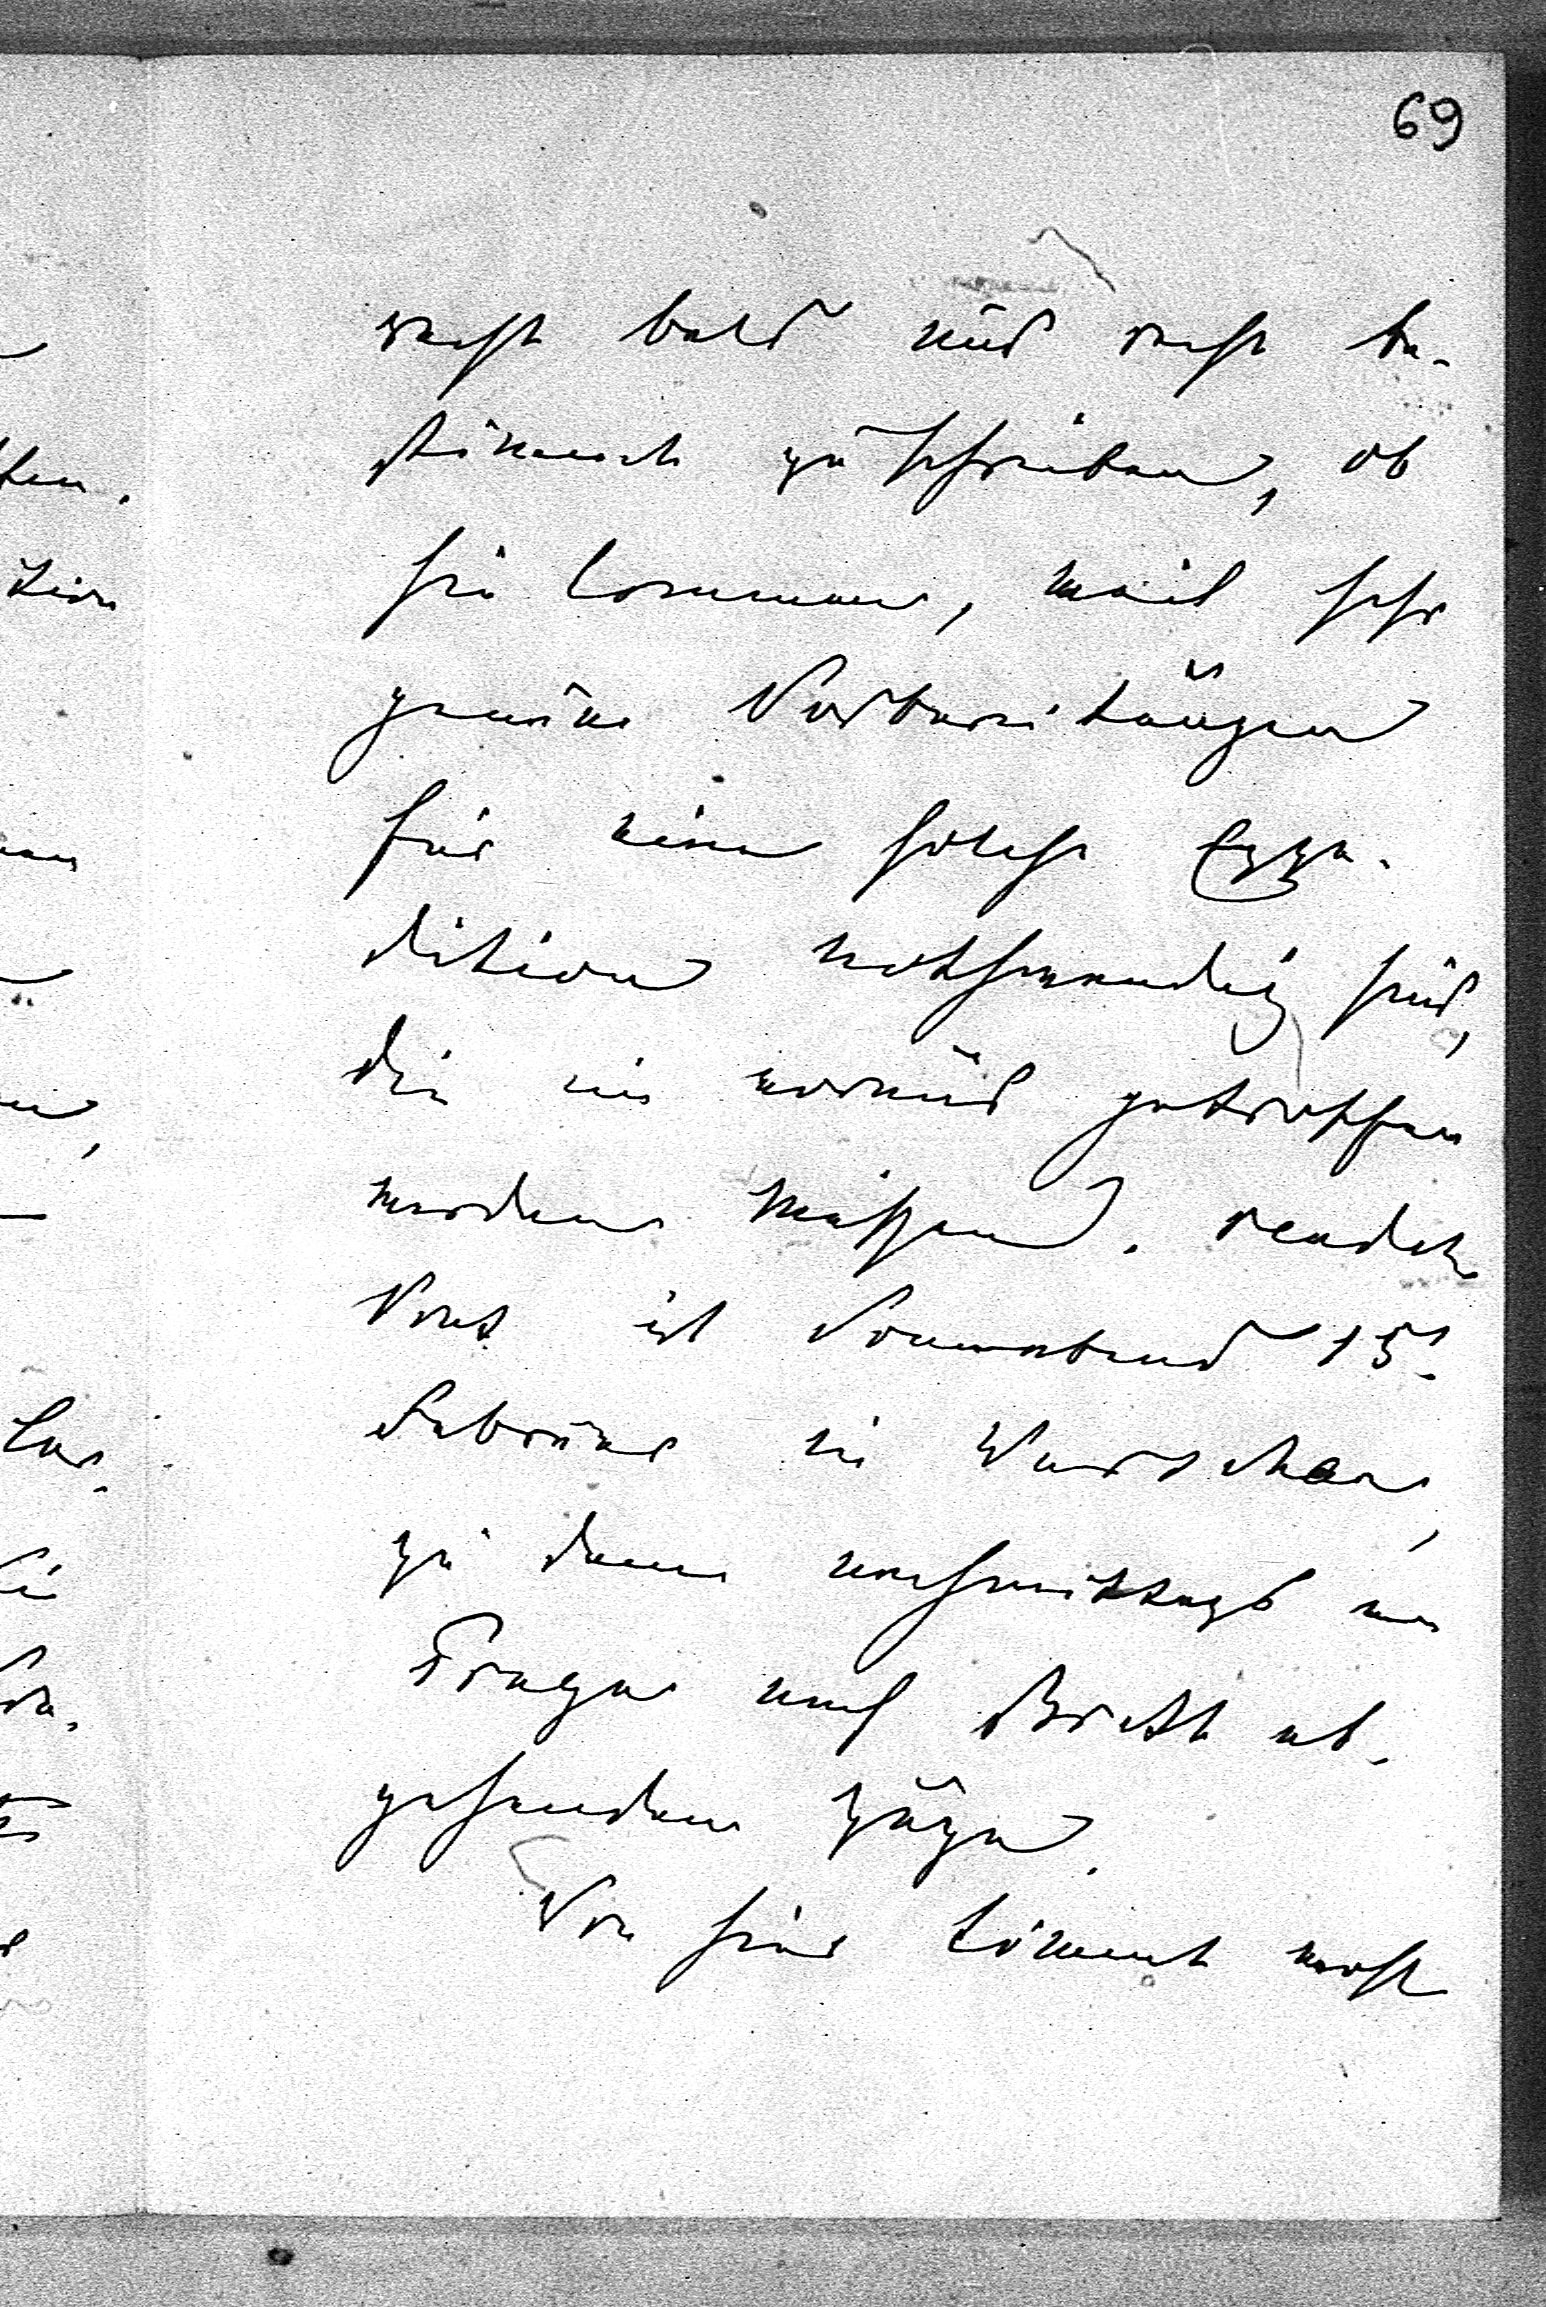 69
recht bald und recht be-
stimmt zu schreiben, ob
sie kommen, weil sehr
genaue Vorbereitungen
für eine solche Expe-
dition nothwendig sind,
die nie voraus getroffen
werden müssen. rendez
Vous ist Sonnabend 15.
Februar in Warschau,
zu dem nachmittags
Prager nach Brest ab-
gehenden Zuge.
Von hier kommt wohl